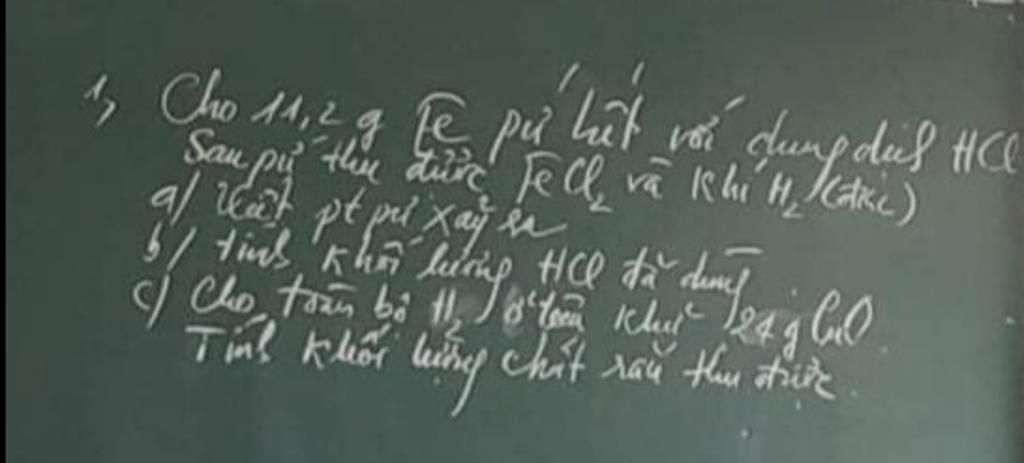 1, Cho 11,2 g Fe pứ hết với dung dịch HCl
Sau pứ thu được FeCl₂ và khí H₂ (đktc)
a/ Viết pt pứ xảy ra
b/ Tính khối lượng HCl đã dùng
c/ Cho toàn bộ H₂ ở trên khử 24 g CuO.
Tính khối lượng chất rắn thu được.